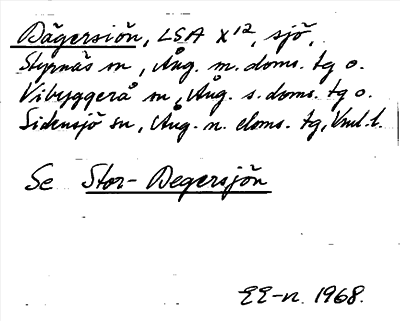 Dägersiön, LSA X¹², sjö,
Styrnäs sn, Ång. m. doms. tg o.
Vibyggerå sn, Ång. s. doms. tg o.
Sidensjö sn, Ång. n. doms. tg, Vml. l.
Se Stor-Degersjön
EE-n. 1968.